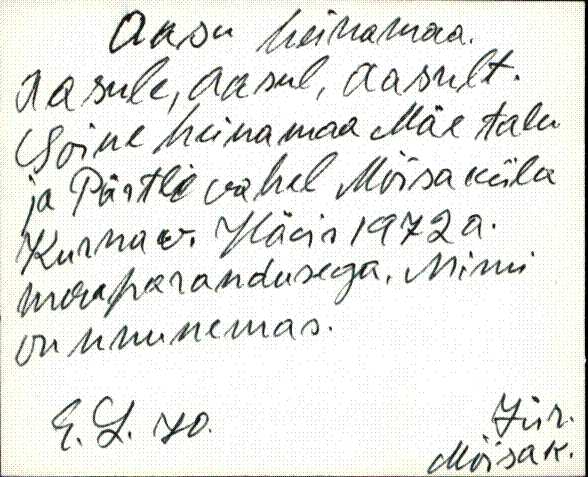 Aasu heinamaa.
Aasule, Aasul, Aasult.
Soine heinamaa Mäe talu
ja Pärtli vahel Mõisaküla
Kurna v. Hävis 1972 a.
maaparandusega. Nimi
on ununemas.
E. L. 70.
Jür.
Mõisak.